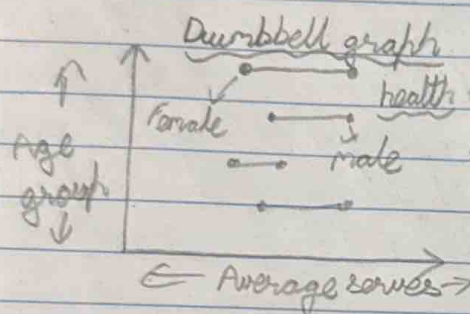 Dumbbell graph
health
Female
male
Age
group
Average serves